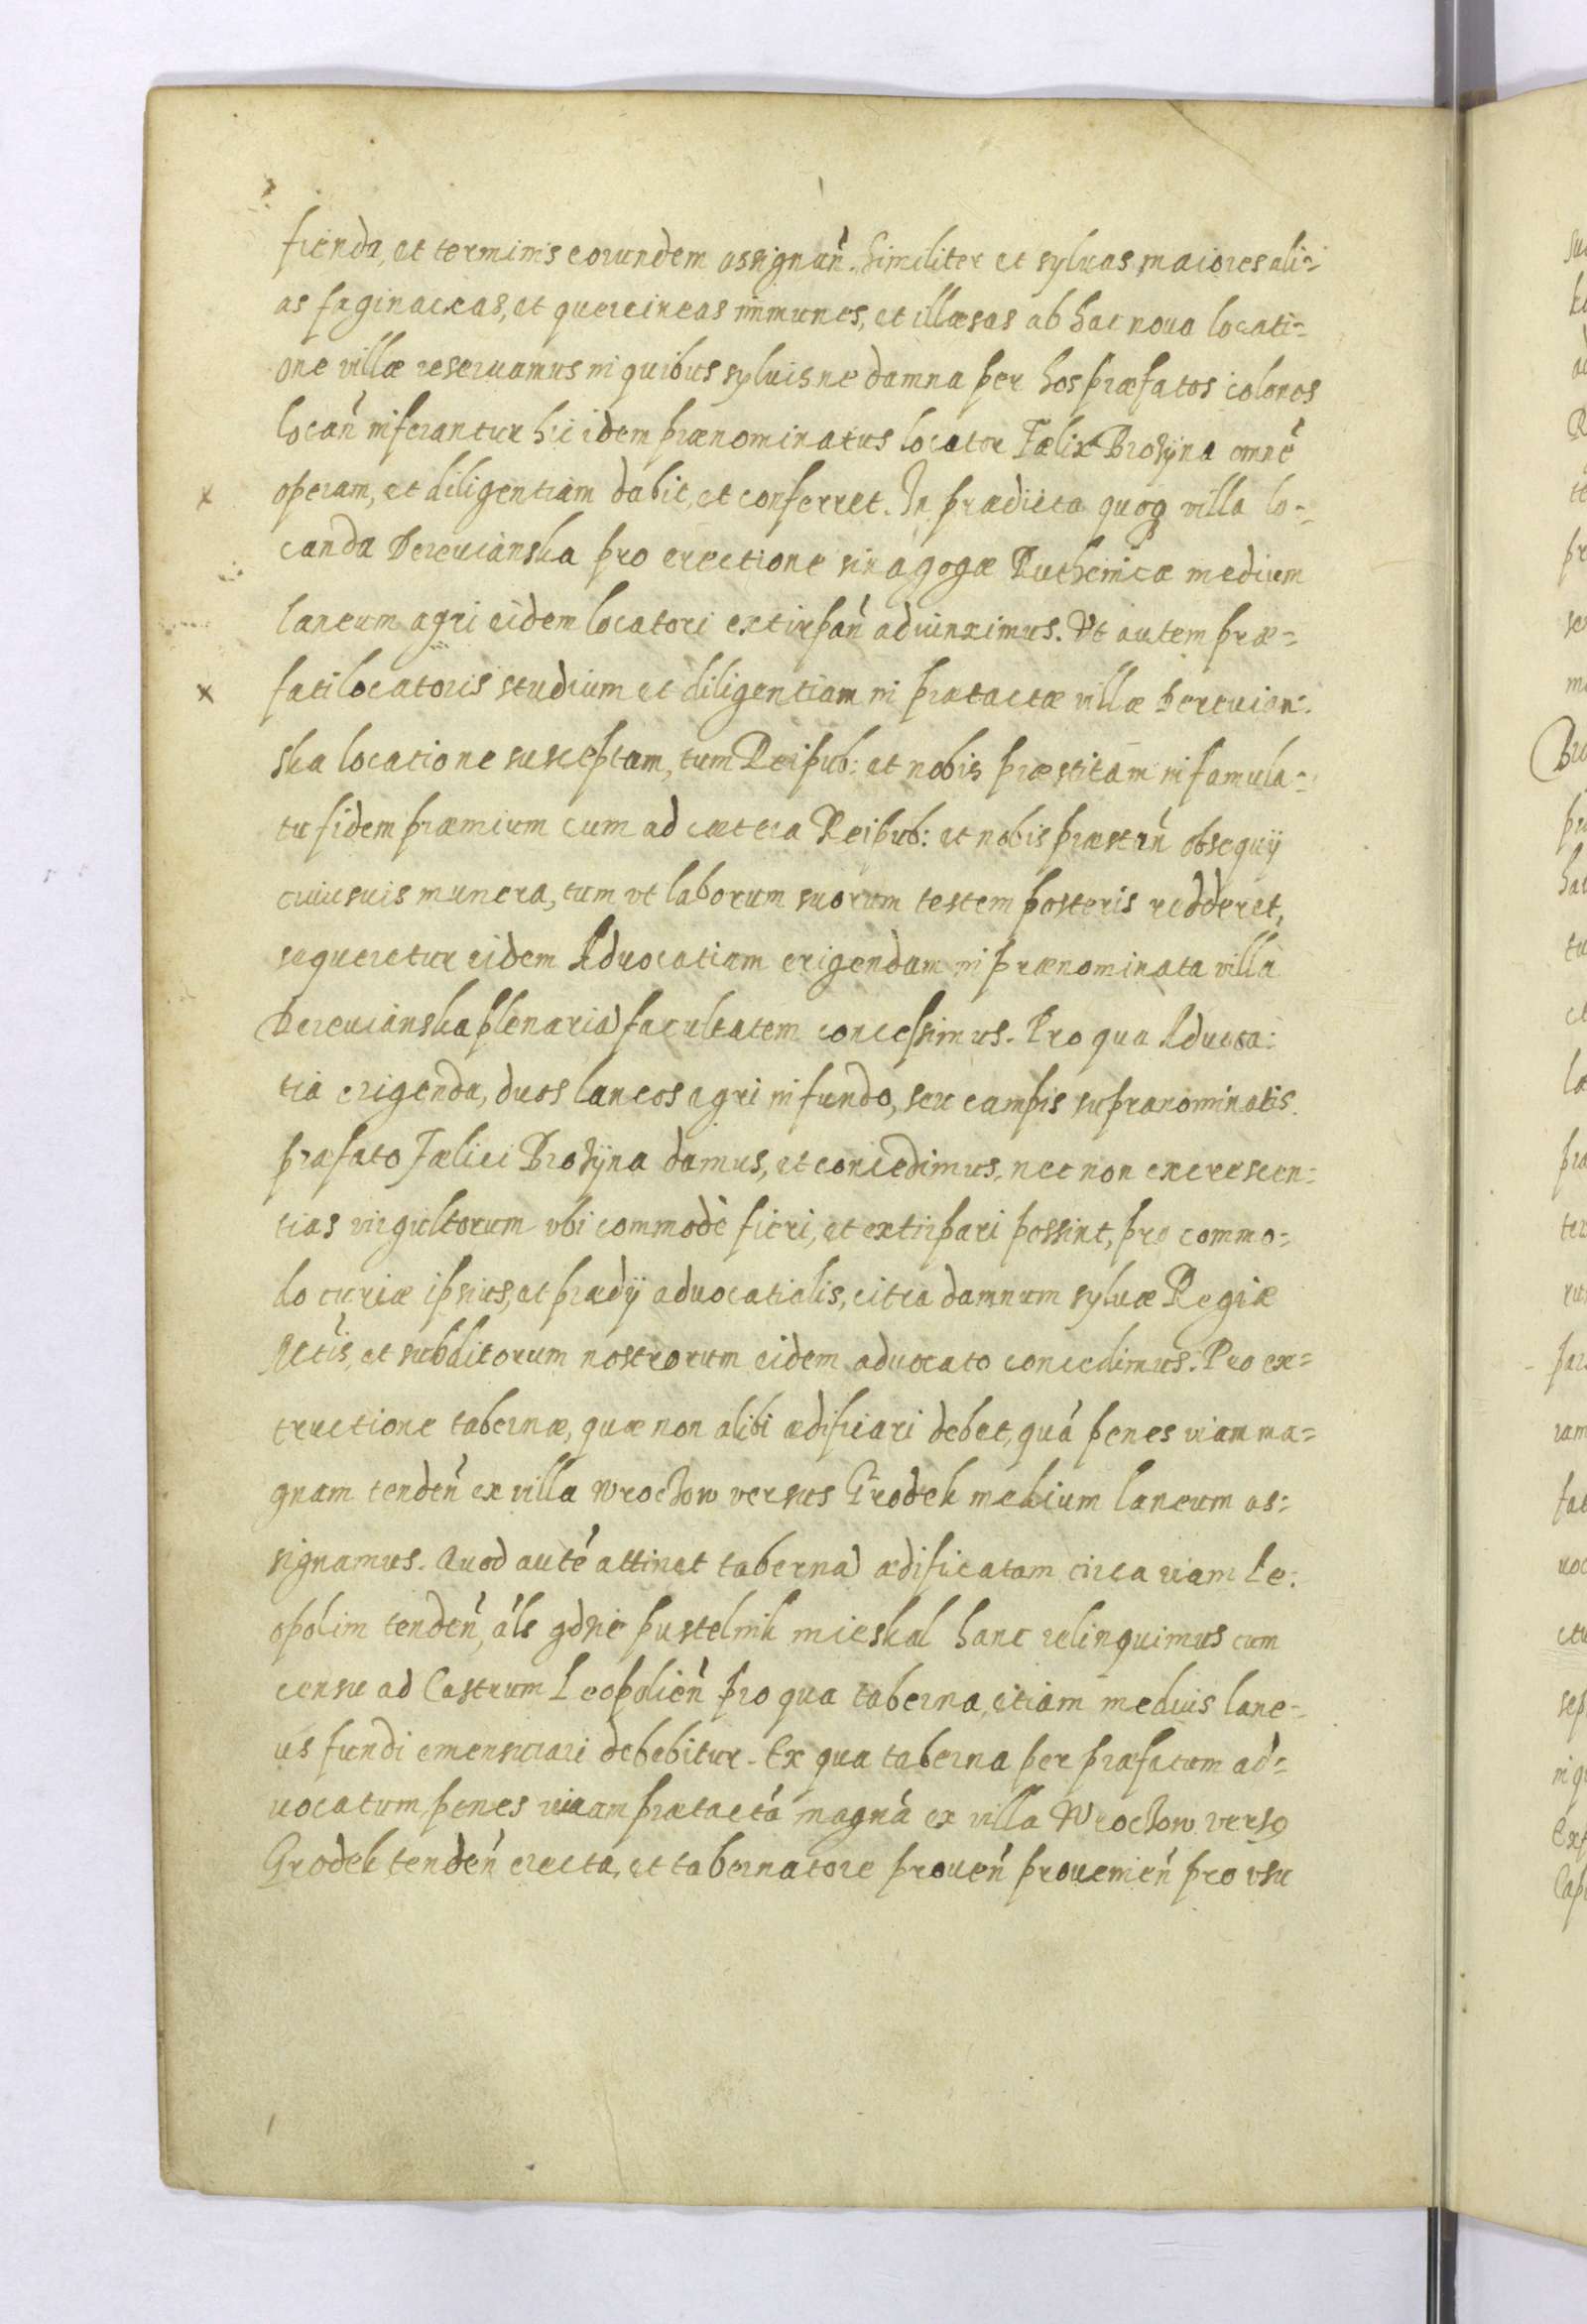 fienda, et terminis eorundem assignań. Similiter et syluas maiores ali=
as faginaceas, et quercineas immunes, et illæsas ab hac noua locati=
one villæ reseruamus in quibus syluis ne damna per hos præfatos colonos
locań inferantur hic idem prænominatus locator Fælix Brosÿna omné
operam, et diligentiam dabit, et conferret. In prædicta quoq villa lo=
canda Dereuianska pro erectione sinagogæ Ruthenicæ medium
laneum agri eidem locatori extirpań adiunximus. Vt autem præ=
fati locatoris studium et diligentiam in prætactæ villæ Dereuian=
ska locatione susceptam, tum Reipub: et nobis præstitam in famula=
tu fidem præmium cum ad cætera Reipub: et nobis præstań obsequÿ
cuiusuis munera, tum vt laborum suorum testem posteris redderet,
sequeretur eidem Aduocatiam erigendam in prænominata villa
Dereuianska plenariā facultatem concessimus. Pro qua Aduoca=
tia erigenda, duos laneos agri in fundo, seu campis supranominatis
præfato Fælici Brosÿna damus, et concedimus, nec non excrescen=
tias virgultorum vbi commodè fieri, et extirpari possint, pro commo=
do curiæ ipsius, ac prædÿ aduocatialis, citra damnum syluæ Regiæ
Mtis, et subditorum nostrorum eidem aduocato concedimus. Pro ex=
tructione tabernæ, quæ non alibi ædificari debet, quá penes viam ma=
gnam tendeń ex villa Wrochow versus Grodek medium laneum as=
signamus. Quod auté attinet tabernā ædificatam circa viam Le=
opolim tendeń, áls gdzie pustelnik mieskal hanc relinquimus cum
censu ad Castrum Leopolień pro qua taberna, etiam medius lane=
us fundi emensurari debebitur. Ex qua taberna per præfatum ad=
uocatum, penes viam prætactá magná ex villa Wrochow versq
Grodek tendeń erecta, et tabernatore proueń prouenień pro vsu